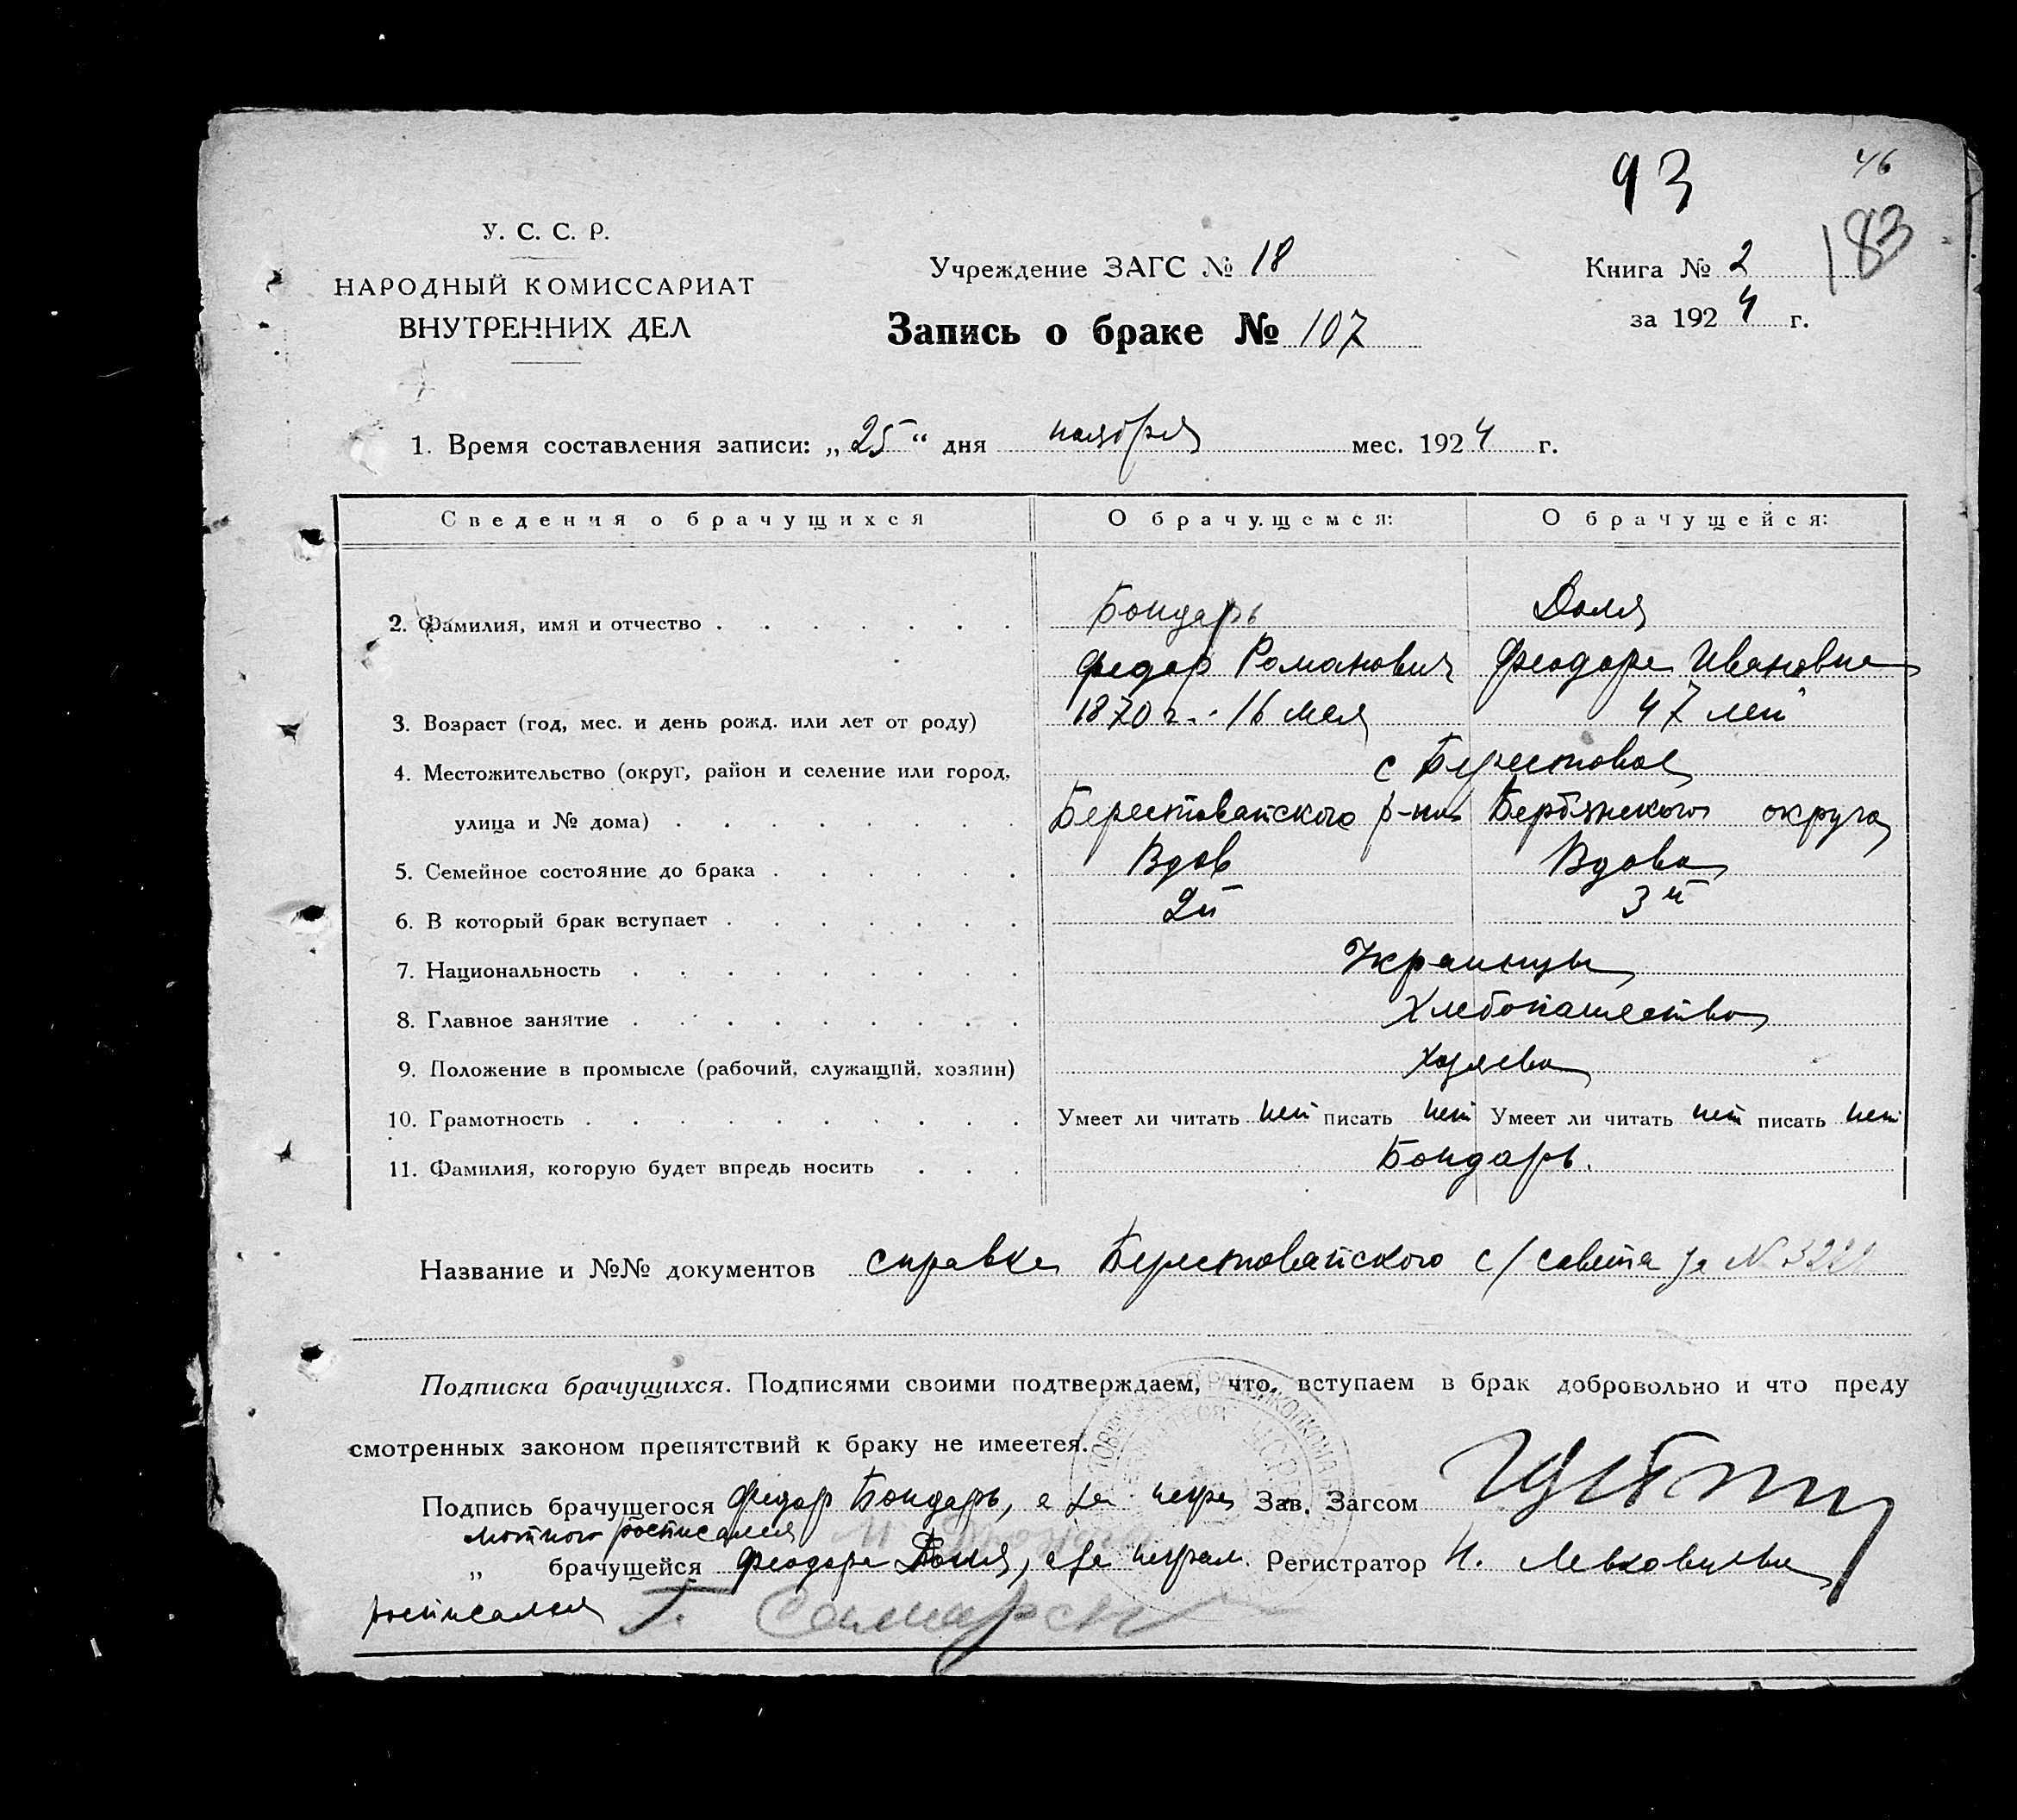 93
46
183
У. С. С. Р.
НАРОДНЫЙ КОМИССАРИАТ
ВНУТРЕННИХ ДЕЛ
Учреждение ЗАГС № 18
Книга № 2
за 1924 г.
Запись о браке № 107
1. Время составления записи: „25“ дня ноября мес. 1924 г.
Сведения о брачущихся О брачущемся: О брачущейся:
2. Фамилия, имя и отчество Бондарь Доля
Федор Романович Феодора Ивановна
3. Возраст (год, мес. и день рожд. или лет от роду) 1870 г. 16 мая 47 лет
4. Местожительство (округ, район и селение или город, с Берестовое
улица и № дома) Берестоватского р-на Бердянского округа
5. Семейное состояние до брака Вдов Вдова
6. В который брак вступает 2й 3й
7. Национальность Украинцы
8. Главное занятие Хлебопашество
9. Положение в промысле (рабочий, служащий, хозяин) Хозяева
10. Грамотность Умеет ли читать нет писать нет Умеет ли читать нет писать нет
11. Фамилия, которую будет впредь носить Бондарь.
Название и №№ документов справка Берестоватского с/совета за №
Подписка брачущихся. Подписями своими подтверждаем, что, вступаем в брак добровольно и что преду
смотренных законом препятствий к браку не имеетея.
Подпись брачущегося Федор Бондарь, а за негра Зав. Загсом
мотного росписался
„ брачущейся Феодора Доля, а за неграм. Регистратор Н.
росписался Г.